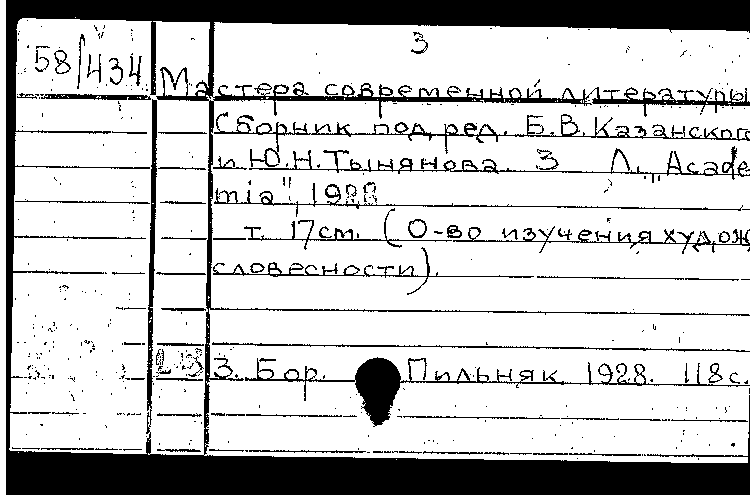 3
58/434 Мастера современной литературы
Сборник под ред. Б.В. Казанского
и Ю.Н. Тынянова. 3 Л., "Acade
mia", 1928
т. 17 см. (О-во изучения худож
словесности).
3. Бор. Пильняк. 1928. 118 с.